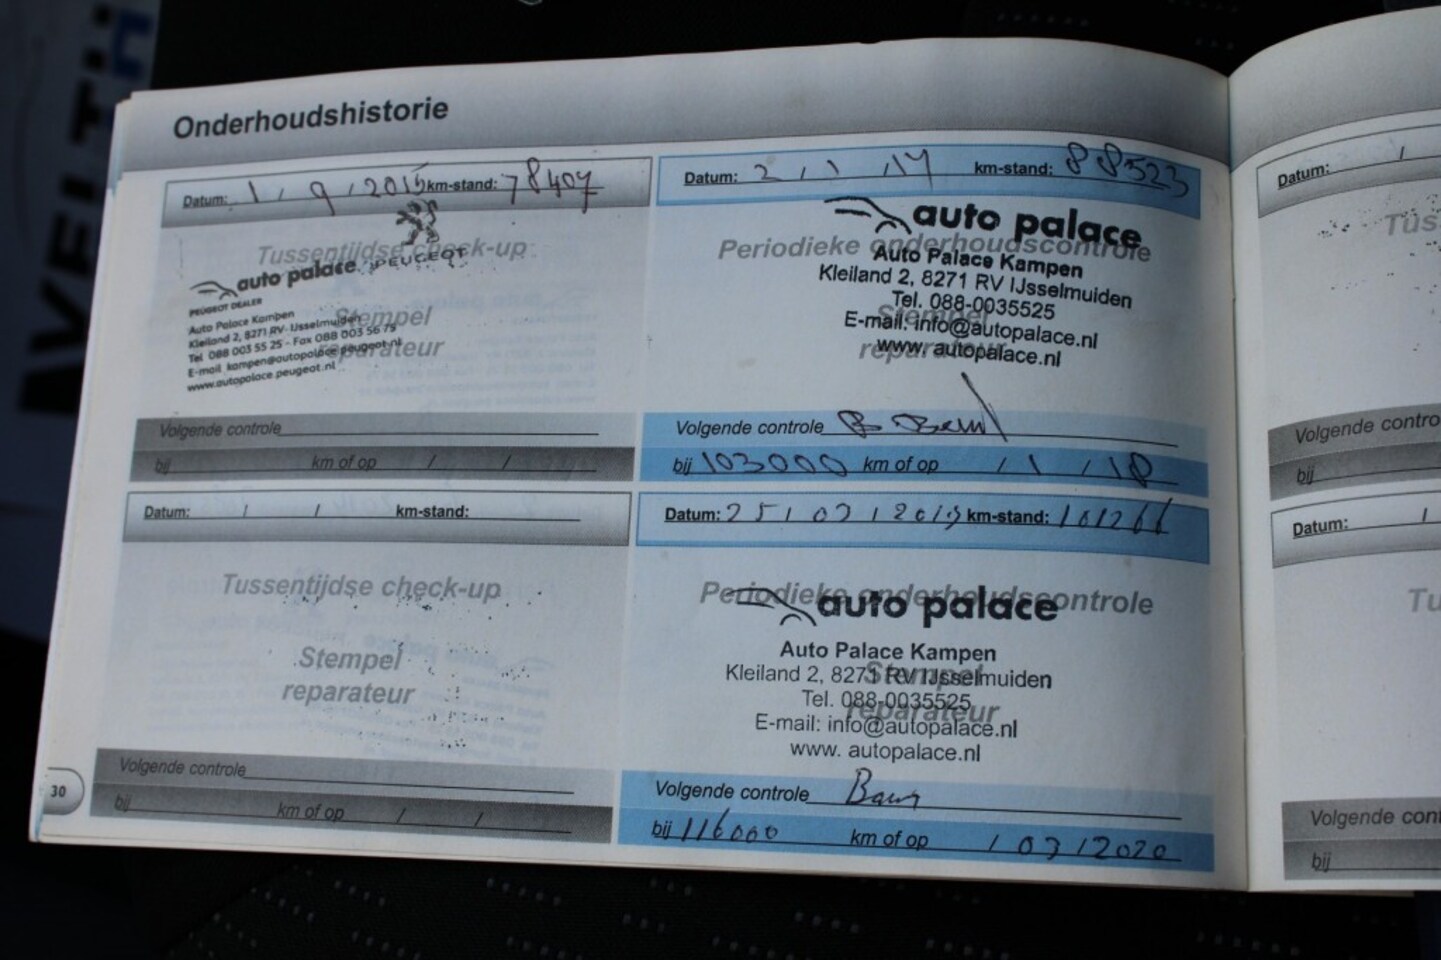 Onderhoudshistorie
Datum: 1 / 9 / 2015 km-stand: 78407
Tussentijdse check-up
auto palace PEUGEOT
PEUGEOT DEALER
Auto Palace Kampen
Kleiland 2, 8271 RV IJsselmuiden
Tel 088 003 55 25 - Fax 088 003 56 75
E-mail kampen@autopalace.peugeot.nl
www.autopalace.peugeot.nl
Stempel
reparateur
Volgende controle
bij km of op / /
Datum: 2 / 1 / 17 km-stand: 88523
auto palace
Periodieke onderhoudscontrole
Auto Palace Kampen
Kleiland 2, 8271 RV IJsselmuiden
Tel. 088-0035525
E-mail: info@autopalace.nl
www. autopalace.nl
Stempel
reparateur
Volgende controle
bij 103000 km of op / 1 / 18
Datum: / / km-stand:
Tussentijdse check-up
Stempel
reparateur
Volgende controle
bij km of op / /
30
Datum: 25 / 03 / 2019 km-stand: 101266
Periodieke onderhoudscontrole
auto palace
Auto Palace Kampen
Kleiland 2, 8271 RV IJsselmuiden
Tel. 088-0035525
E-mail: info@autopalace.nl
www. autopalace.nl
Stempel
reparateur
Volgende controle
bij 116000 km of op / 03 / 2020
Datum: /
Tus
Volgende contro
bij
Datum: /
Tu
Volgende cont
bij